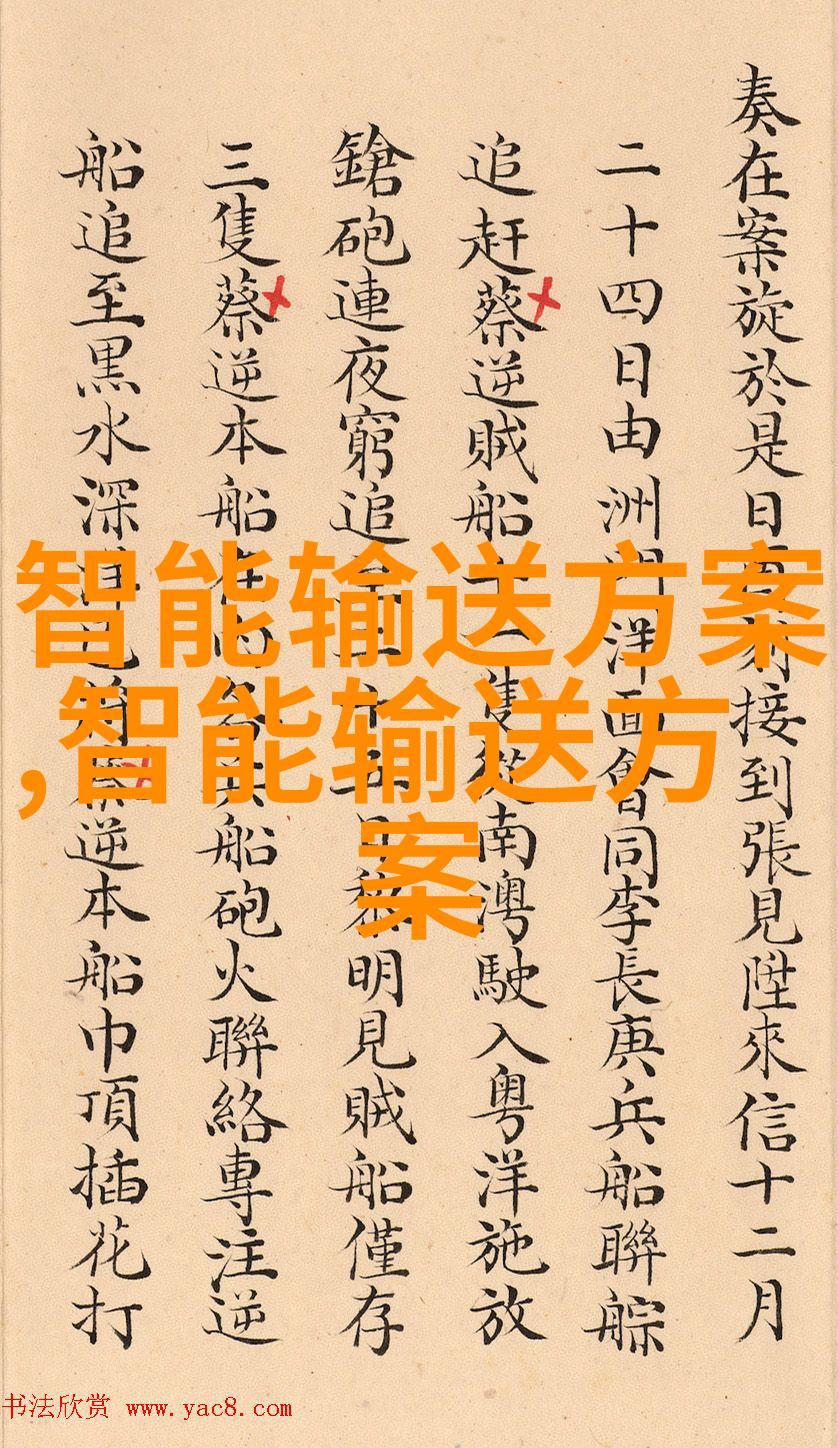 奏在案旋於是日
接到張見陞來信十二月
二十四日由洲
洋面會同李長庚兵船聯䑸
追赶蔡逆賊船十一隻從南澚駛入粤洋施放
鎗砲連夜窮追至二十五日黎明見賊船僅存
三隻蔡逆本船在内各兵船砲火聯絡專注逆
船追至黑水深洋已將蔡逆本船巾頂插花打
智能输送方案
,智能输送方
案
书法欣赏 www.yac8.com